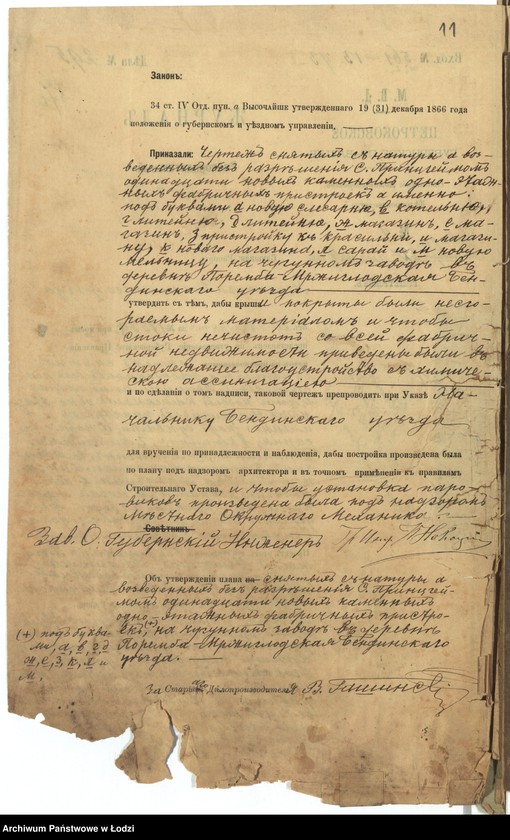 11
Законъ:
34 ст. IV Отд. пун. а Высочайше утвержденнаго 19 (31) декабря 1866 года
положенія о губернскомъ и уѣздномъ управленіи,
Приказали: Чертежъ снятыхъ съ натуры а воз-
веденныхъ безъ разрѣшенія С. Принцгеймомъ
одинадцати новыхъ каменныхъ одно-этаж-
ныхъ фабричныхъ пристроекъ а именно
подъ буквами а новую слесарню, в котельню,
г литейню, д литейню, ж магазинъ, е ма-
газинъ, з пристройку къ красильни, и магази-
ну, к новаго магазина, л сарай и м новую
мельницу, на чугунномъ заводѣ въ
деревнѣ Поремба-Мржиглодская Бен-
динскаго уѣзда
утвердить съ тѣмъ, дабы крыши покрыты были несго-
раемымъ матеріаломъ и чтобы
стоки нечистотъ со всей фабрич-
ной недвижимости приведены были въ
надлежащее благоустройство съ химиче-
скою ассинизаціею
и по сдѣланіи о томъ надписи, таковой чертежъ препроводить при Указѣ На-
чальнику Бендинскаго уѣзда
для врученія по принадлежности и наблюденія, дабы постройка произведена была
по плану подъ надзоромъ архитектора и въ точномъ примѣненіи къ правиламъ
Строительнаго Устава, и чтобы установка паро-
виковъ произведена была подъ надзоромъ
Мѣстнаго Окружнаго Механика
Совѣтникъ
Зав. О. Губернскій Инженеръ
Объ утвержденіи плана на снятыхъ съ натуры а
возведенныхъ безъ разрѣшенія С. Принцгей-
момъ одинадцати новыхъ каменныхъ
одно-этажныхъ фабричныхъ (+) пристро-
екъ, на чугунномъ заводѣ въ деревнѣ
Поремба-Мржиглодская Бендинскаго
уѣзда.
(+) подъ буква-
ми, а, в, г, д
ж, е, з, к, л и
м.
За Старшаго Дѣлопроизводителя В.
Archiwum Państwowe w Łodzi